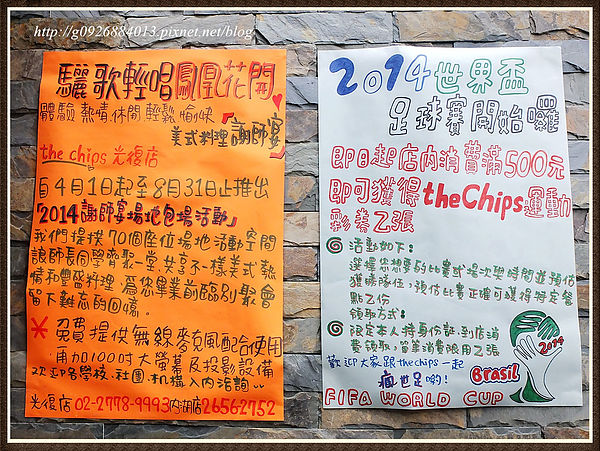 http://g0926884013.pixnet.net/blog
驪歌輕唱鳳凰花開
體驗 熱情.休閒.輕鬆.愉快
美式料理『謝師宴』
the chips 光復店
自4月1日起至8月31日止推出
『2014謝師宴場地包場活動』
我們提供70個座位場地活動空間
讓師長同學齊聚一堂,共享不一樣美式熱
情和豐盛料理,為您畢業前臨別聚會
留下難忘的回憶。
* 免費提供無線麥克風配合使用
再加100吋大螢幕及投影設備
歡迎各學校.社團.機構入內洽詢..
光復店 02-2778-9993 內湖店 26562752
2014世界盃
足球賽開始囉
即日起店內消費滿500元
即可獲得theChips運動
彩券乙張
活動如下:
選擇您想要的比賽式場次與時間並預估
獲勝隊伍,預估比賽正確可獲得特定餐
點乙份
領取方式:
限定本人持身份証,到店消
費領取,單筆消費限用乙張
歡迎大家跟the chips一起
瘋世足喲!
2014
Brasil
FIFA WORLD CUP